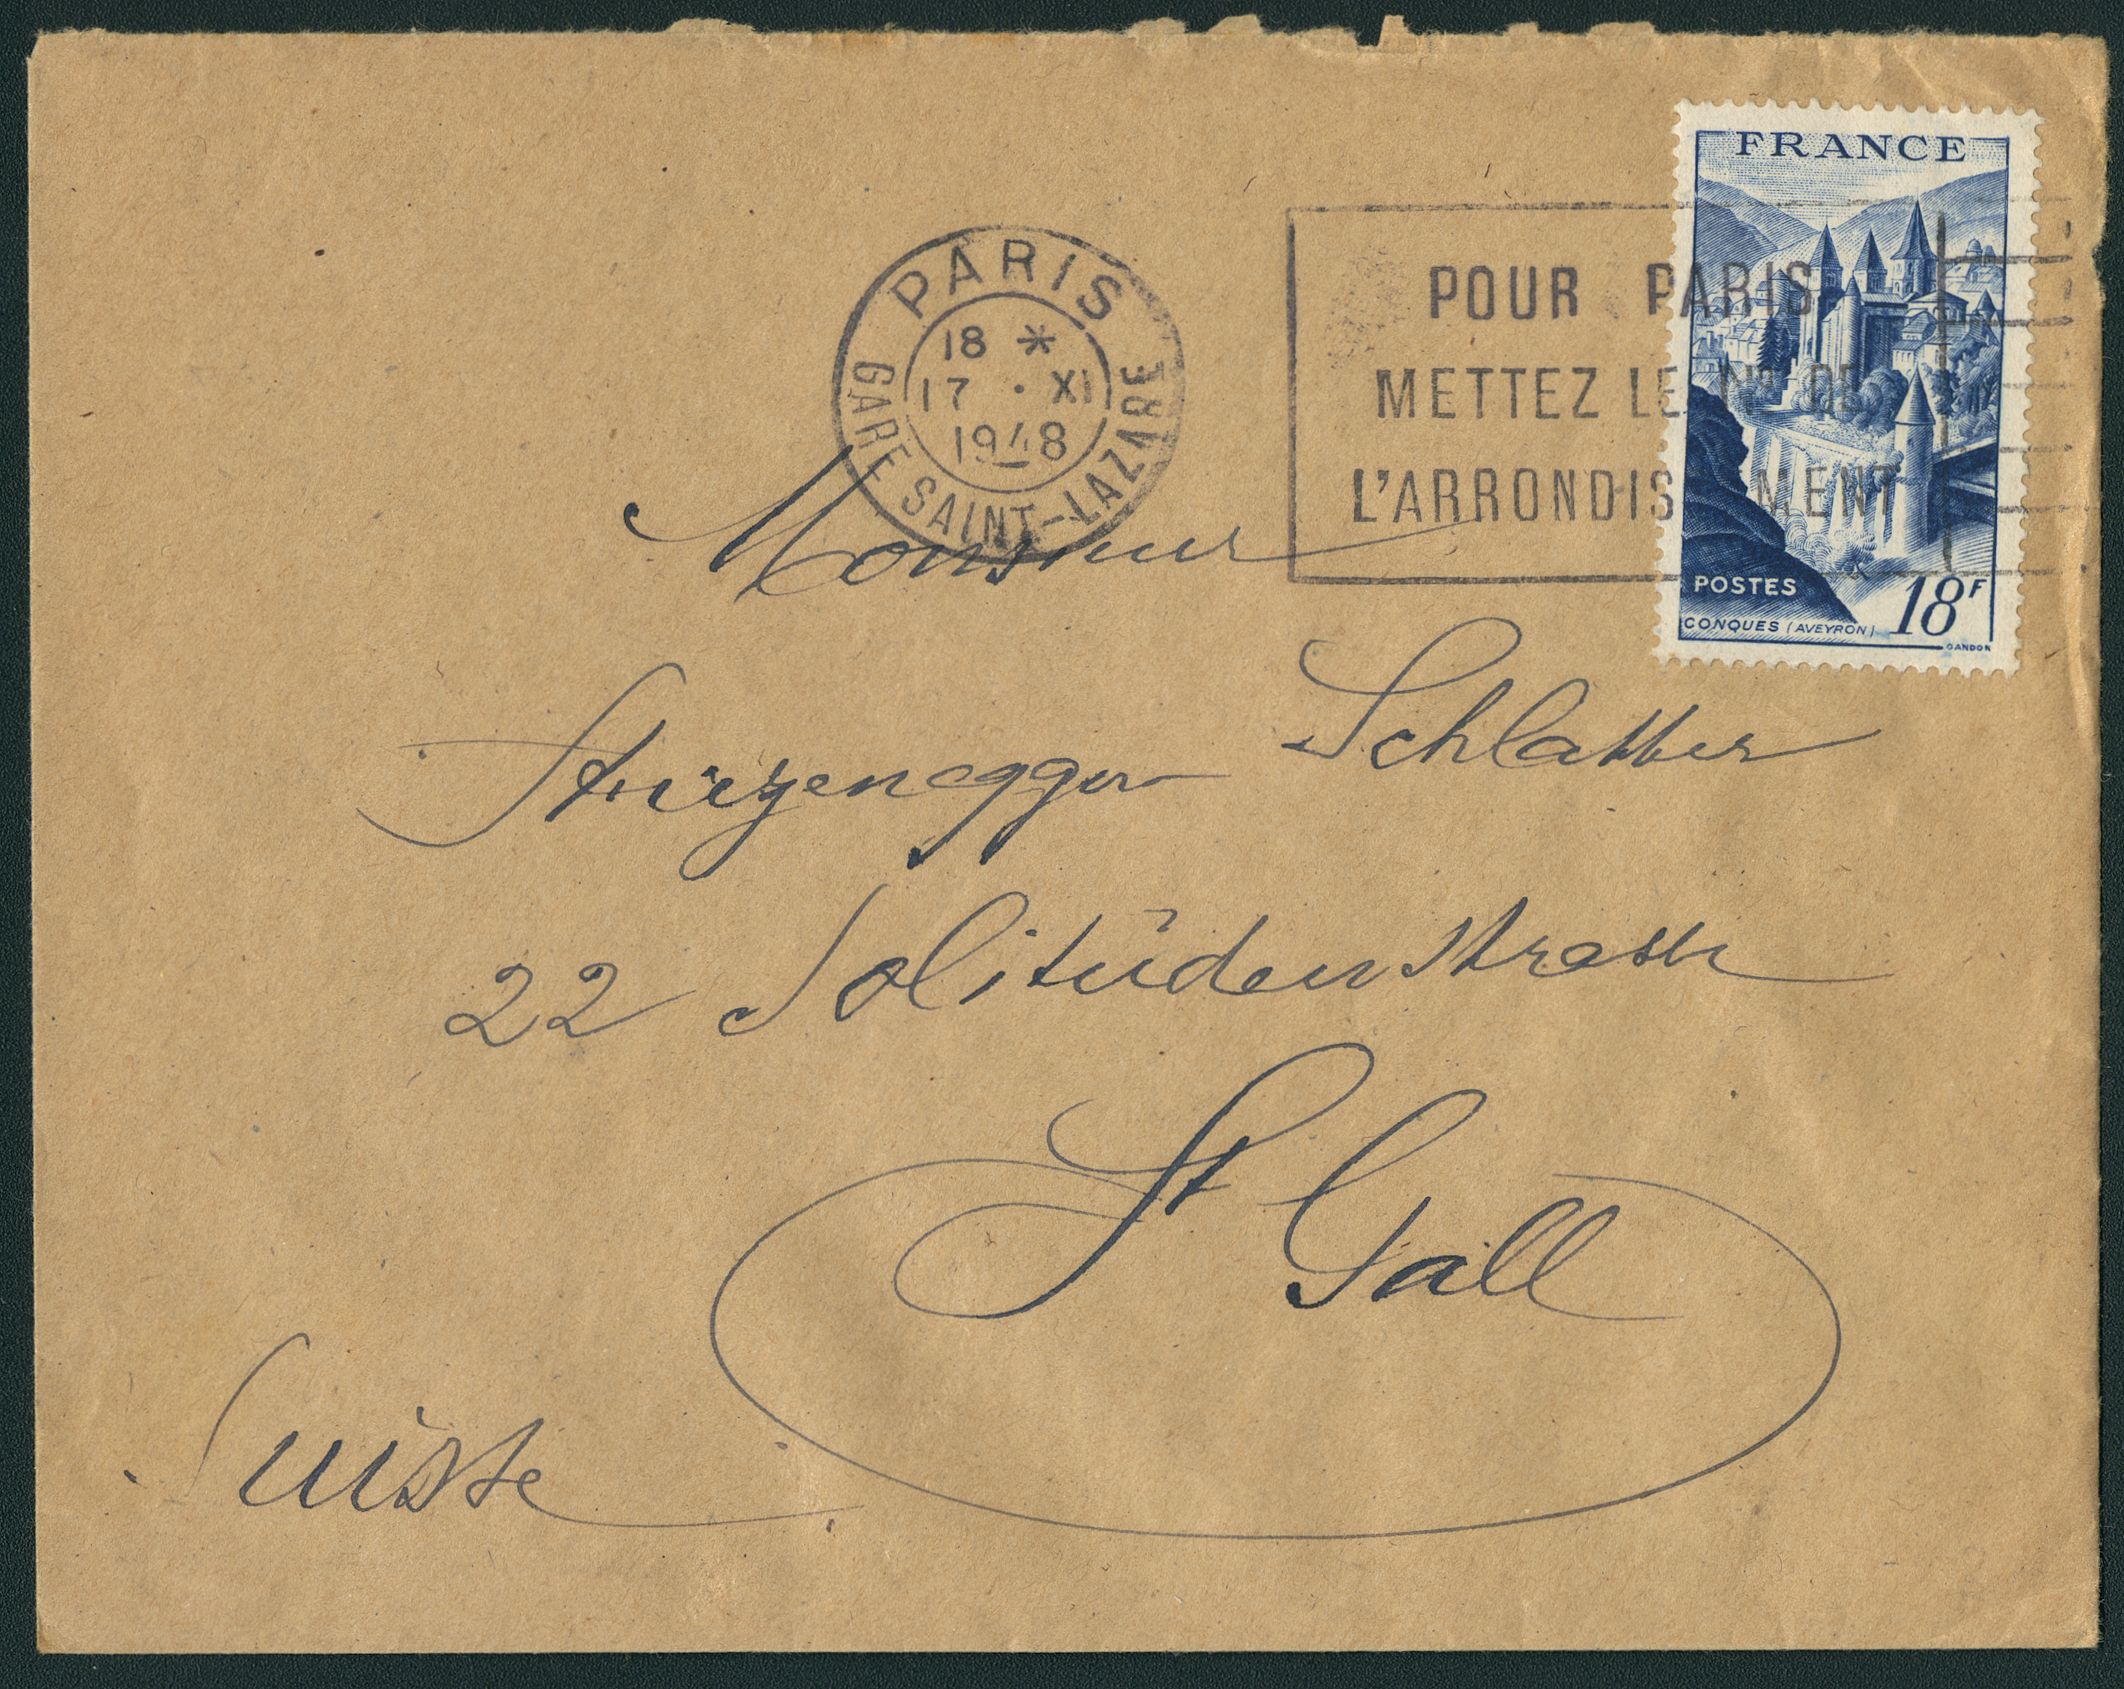 FRANCE
PARIS
18 *
17 · XI
1948
GARE SAINT-LAZARE
POUR PARIS
METTEZ LE No DE
L'ARRONDISSEMENT
POSTES 18F
CONQUES (AVEYRON)
GANDON
Monsieur
Sturzenegger Schlatter
22 Solitüdenstrasse
St Gall
Suisse